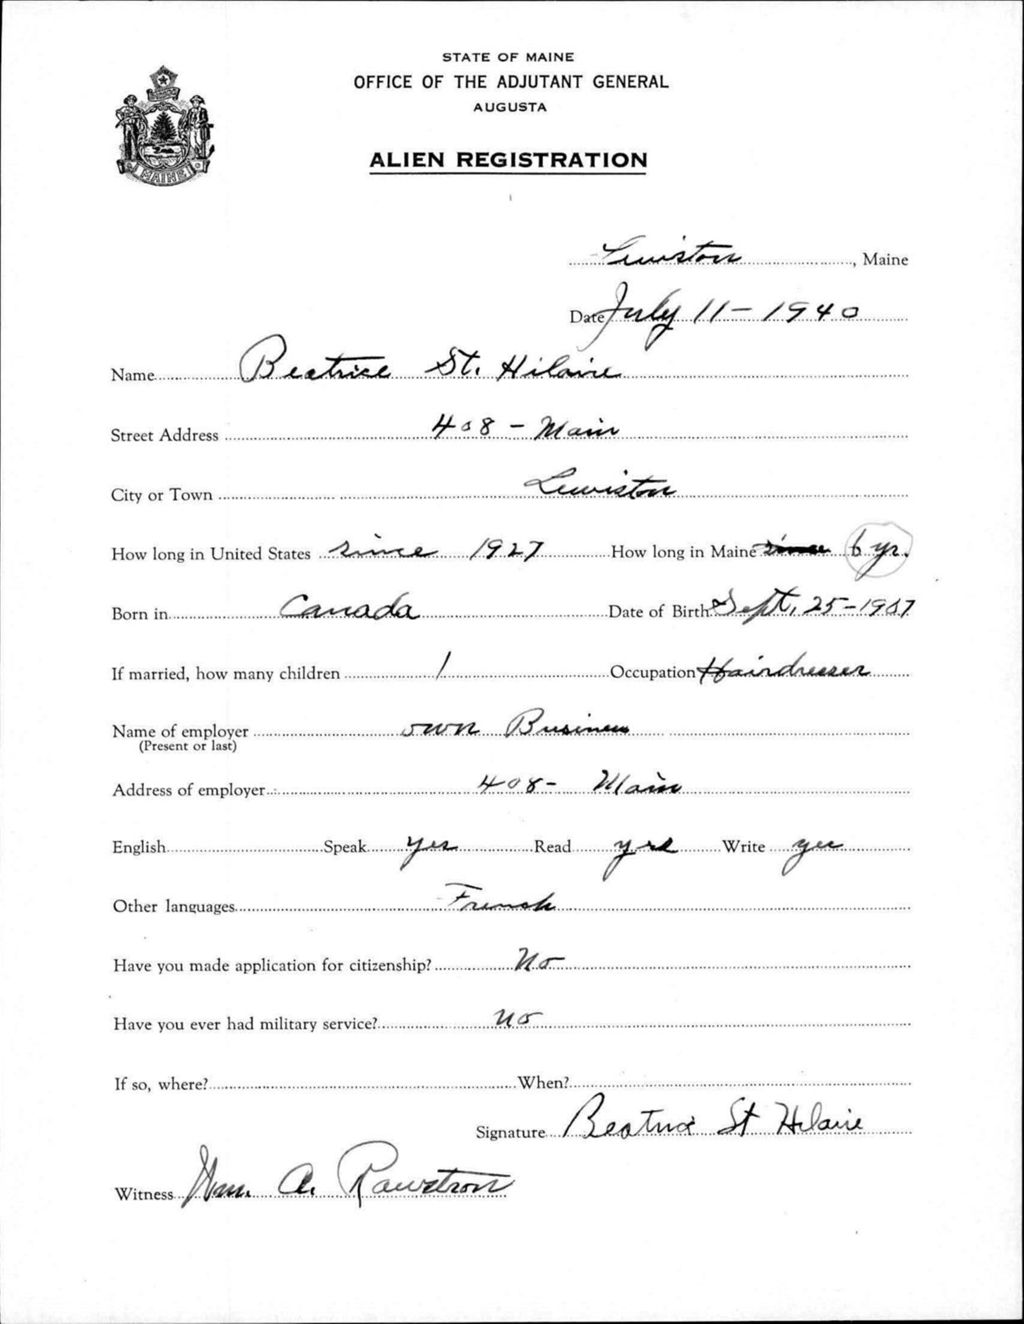 STATE OF MAINE
OFFICE OF THE ADJUTANT GENERAL
AUGUSTA
MAINE
ALIEN REGISTRATION
Lewiston, Maine
Date July 11 - 1940
Name Beatrice St. Hilaire
Street Address 408 - Main
City or Town Lewiston
How long in United States since 1927 How long in Maine since 6 yr.
Born in Canada Date of Birth Sept. 25 - 1907
If married, how many children 1 Occupation Hairdresser
Name of employer own Business
(Present or last)
Address of employer 408 - Main
English Speak yes Read yes Write yes
Other languages French
Have you made application for citizenship? No
Have you ever had military service? No
If so, where? When?
Signature Beatrice St Hilaire
Witness Wm. A. Rawstron